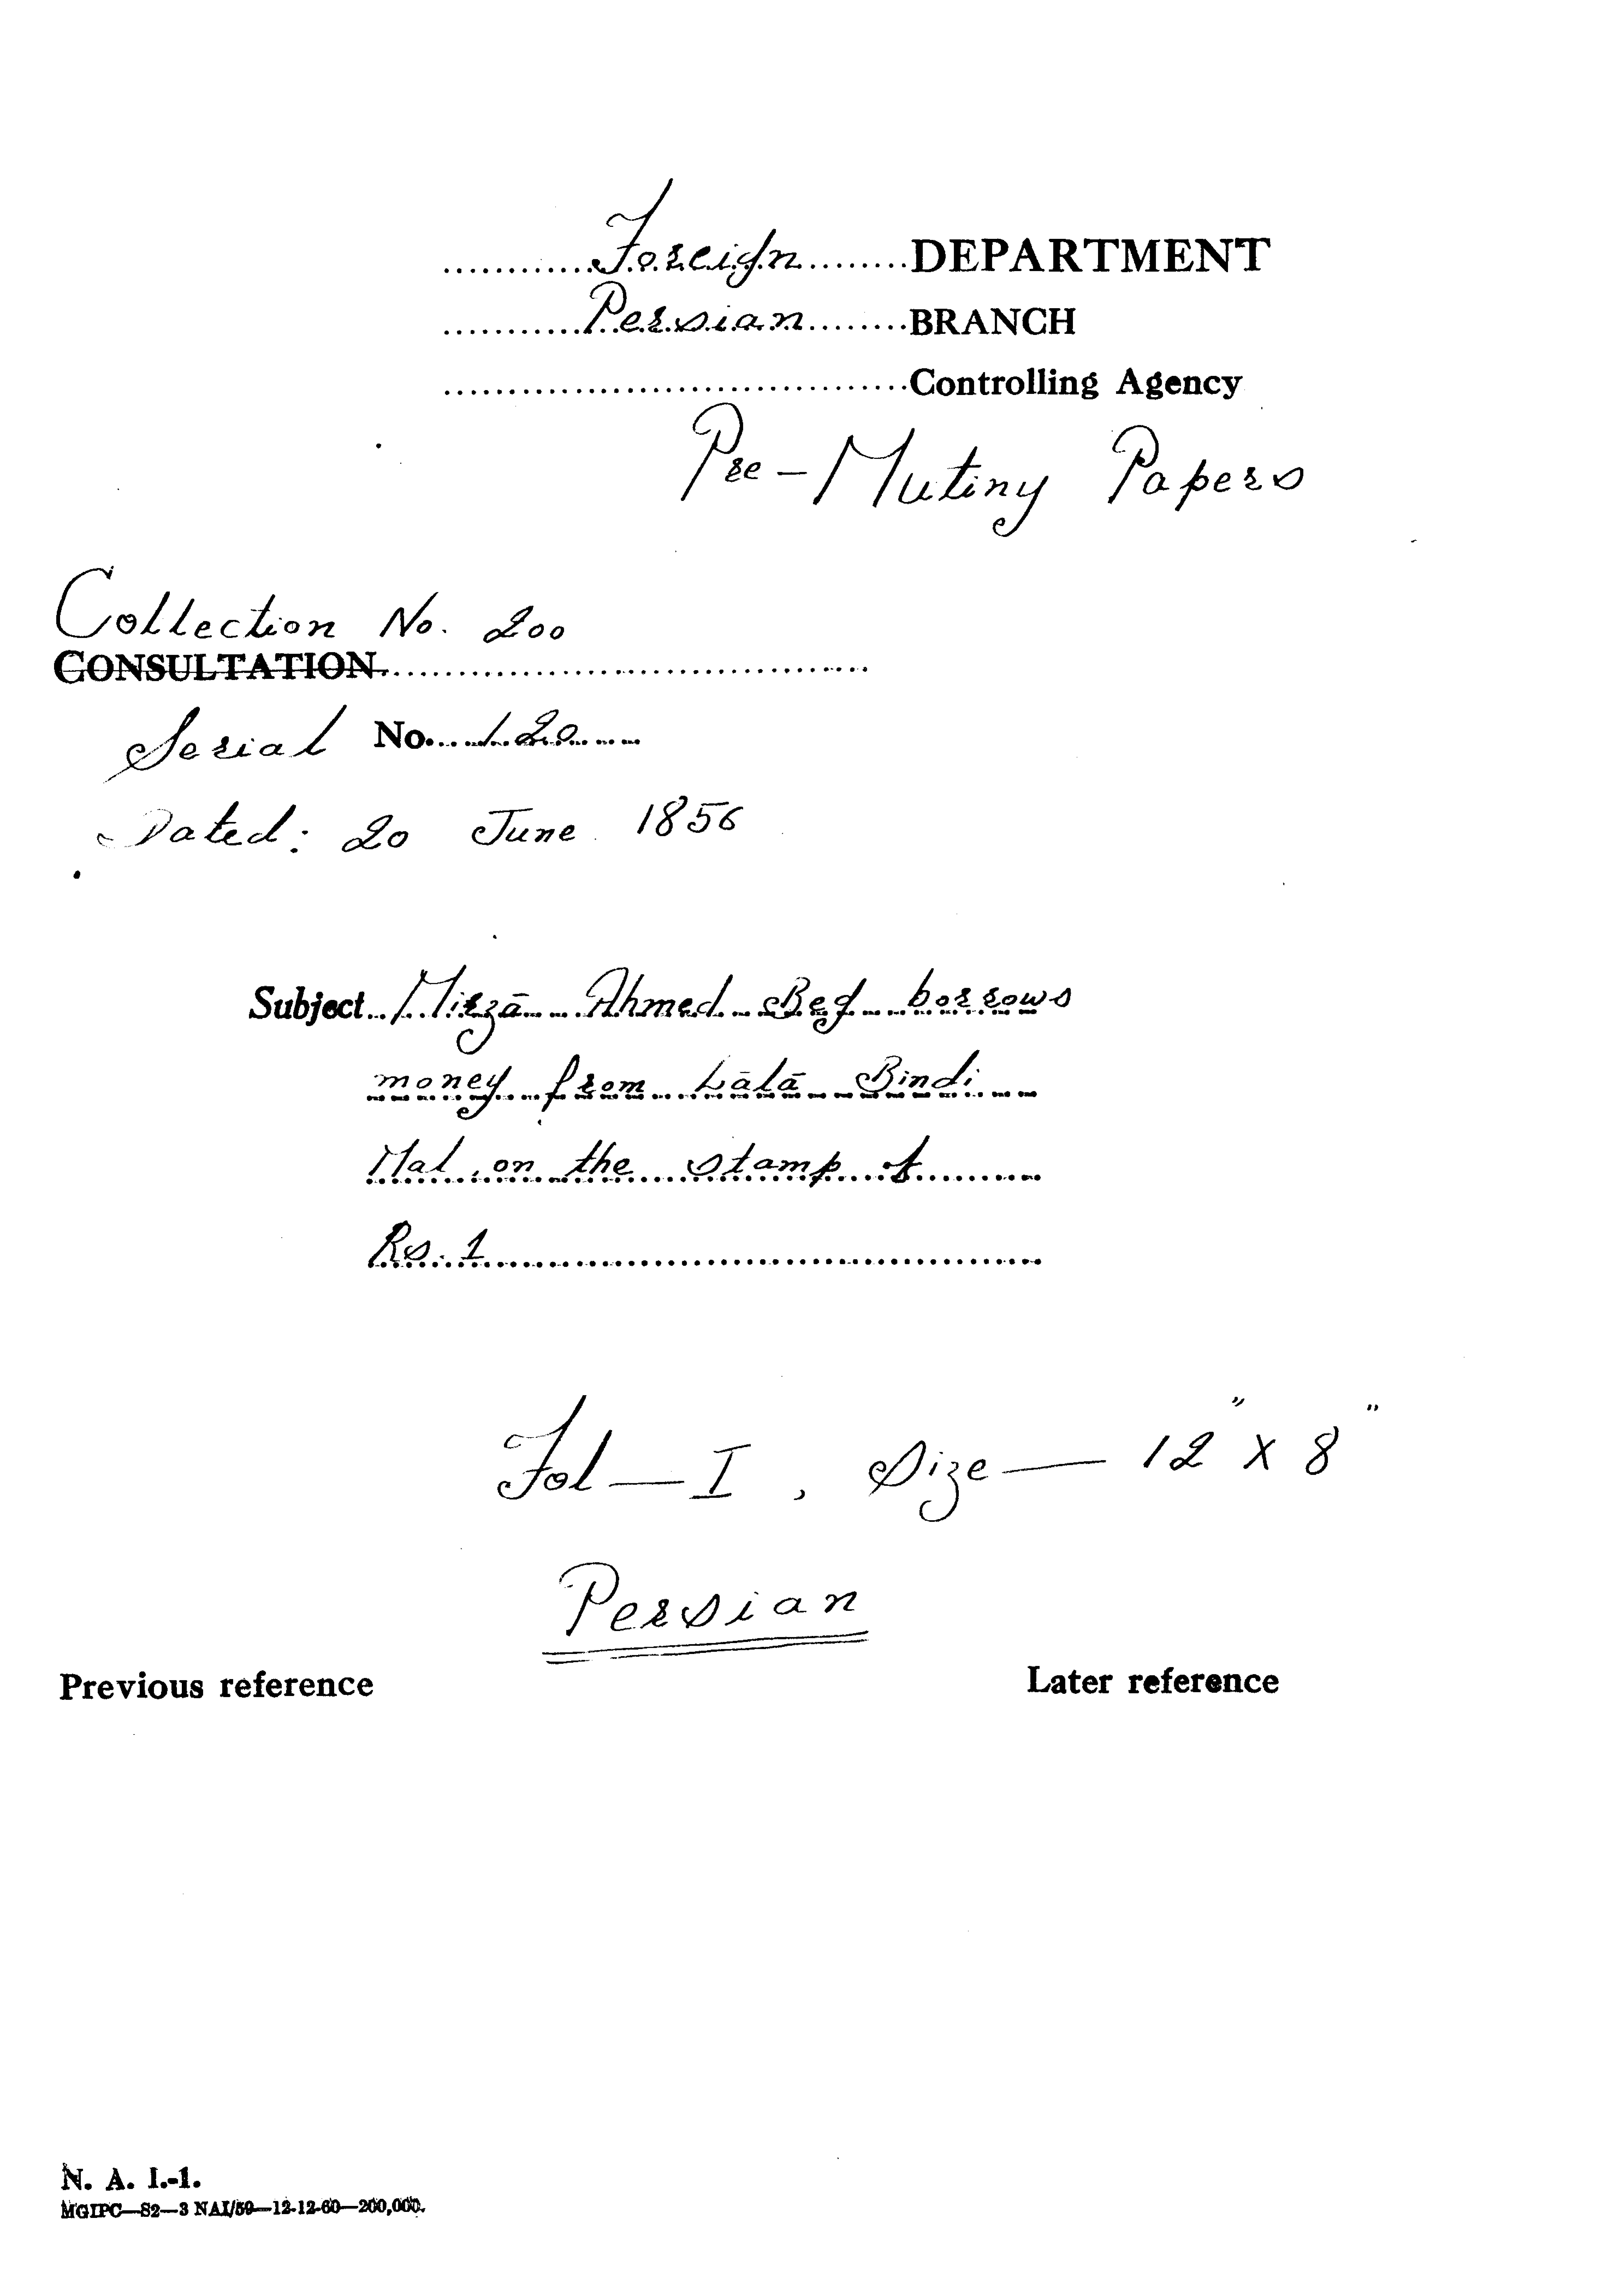 Foreign DEPARTMENT
Persian BRANCH
Controlling Agency
Pre-Mutiny Papers
Collection No. 200
CONSULTATION
Serial No. 120
Dated: 20 June 1856
Subject Mirzā Ahmed Beg borrows
money from Lālā Bindi
Mal, on the stamp of
Rs. 1
Fol — I , Size — 12" X 8"
Persian
Previous reference Later reference
N. A. I.-1.
MGIPC—S2—3 NAI/59—12-12-60—200,000.